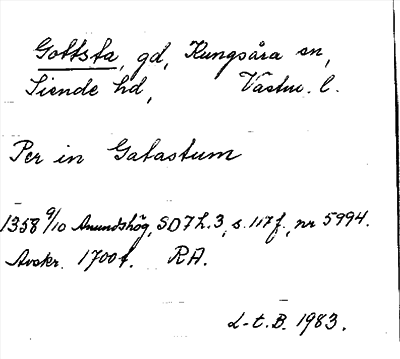 Gottsta, gd, Kungsåra sn,
Siende hd, Västm. l.
Per in Gatastum
1358 9/10 Anundshög, SD 7 h. 3, s. 117 f., nr 5994.
Avskr. 1700 t. RA.
L-t. B. 1983.